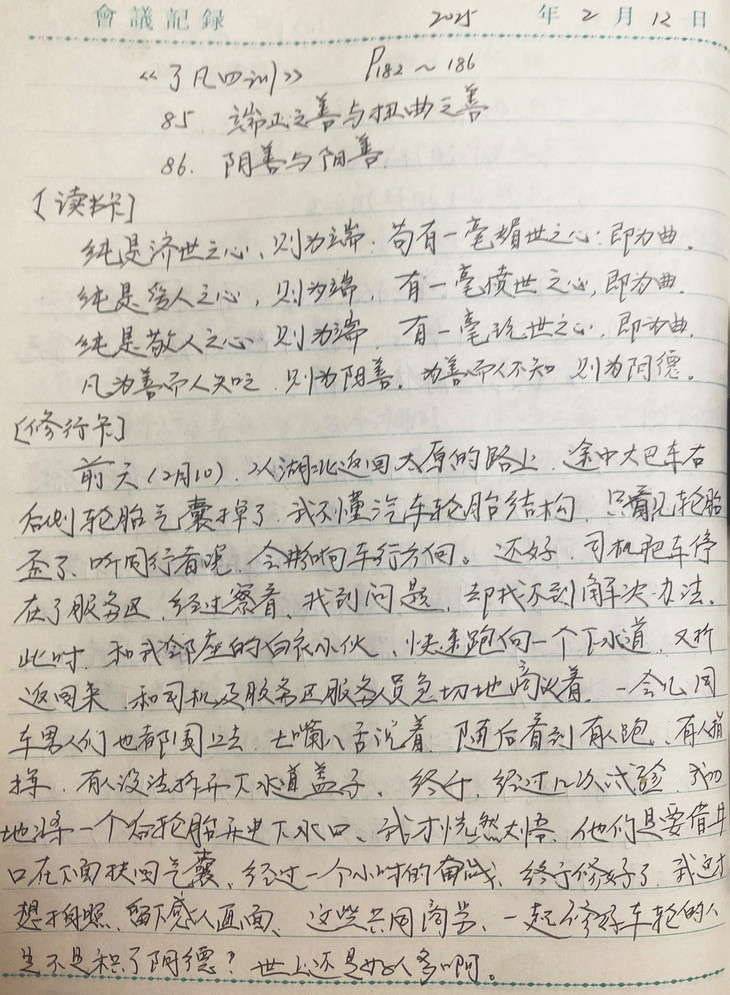 會議記録 2025 年 2 月 12 日
《了凡四训》 P182~186
85. 端正之善与扭曲之善
86. 阴善与阳善.
【读书卡】
纯是济世之心、则为端; 苟有一毫媚世之心; 即为曲.
纯是爱人之心, 则为端, 有一毫愤世之心, 即为曲.
纯是敬人之心 则为端, 有一毫玩世之心, 即为曲.
凡为善而人知之, 则为阳善. 为善而人不知 则为阴德。
【修行卡】
前天(2月10). 从湖北返回太原的路上, 途中大巴车右
后侧轮胎气囊掉了. 我不懂汽车轮胎结构, 只看见轮胎
歪了、听同行者说, 会影响车行方向。还好, 司机把车停
在了服务区, 经过察看、找到问题, 却找不到解决办法.
此时, 和我邻座的白衣小伙, 快速跑向一个下水道, 又折
返回来, 和司机及服务区服务人员急切地商议着. 一会儿同
车男人们也都围上去, 七嘴八舌说着, 随后看到有人跑、有人指
挥, 有人设法拆开下水道盖子. 终于, 经过几次试验,
地将一个后轮胎 下水口、我才恍然大悟、他们是要借井
口在下面 气囊、经过一个小时的奋战、终于修好了. 我这才
想拍照、留下感人画面、这些共同商量、一起修好车轮的人
是不是积了阴德? 世上还是好人多啊。